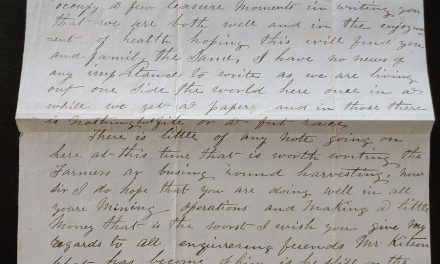 occupy a few leasure moments in writing you
that we are both well and in the enjoyme
ent of health hoping this will find you
and family the Same, I have no news of
any importance to write as we are living
out one Side the world here once in a
while we get a paper and in those there
is nothing but or a
There is little of any note going on
here at this time that is worth writing the
Farmers ar busing round harvesting, now
sir I do hope that you are doing well in all
youre Mining operations and Making a little
Money that is the worst I wish you give my
regards to all enquireing friends Mr Kitson
what has become of him is he still on the